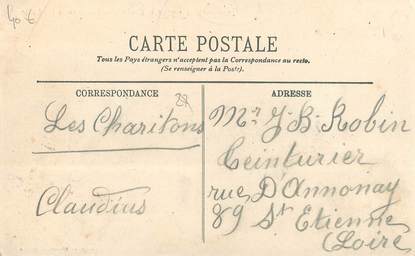 40 €
CARTE POSTALE
Tous les Pays étrangers n'acceptent pas la Correspondance au recto.
(Se renseigner à la Poste).
CORRESPONDANCE
Les Charitons
Claudius
ADRESSE
Mr J-B- Robin
Teinturier
rue D'Annonay
89 St Etienne
(Loire)